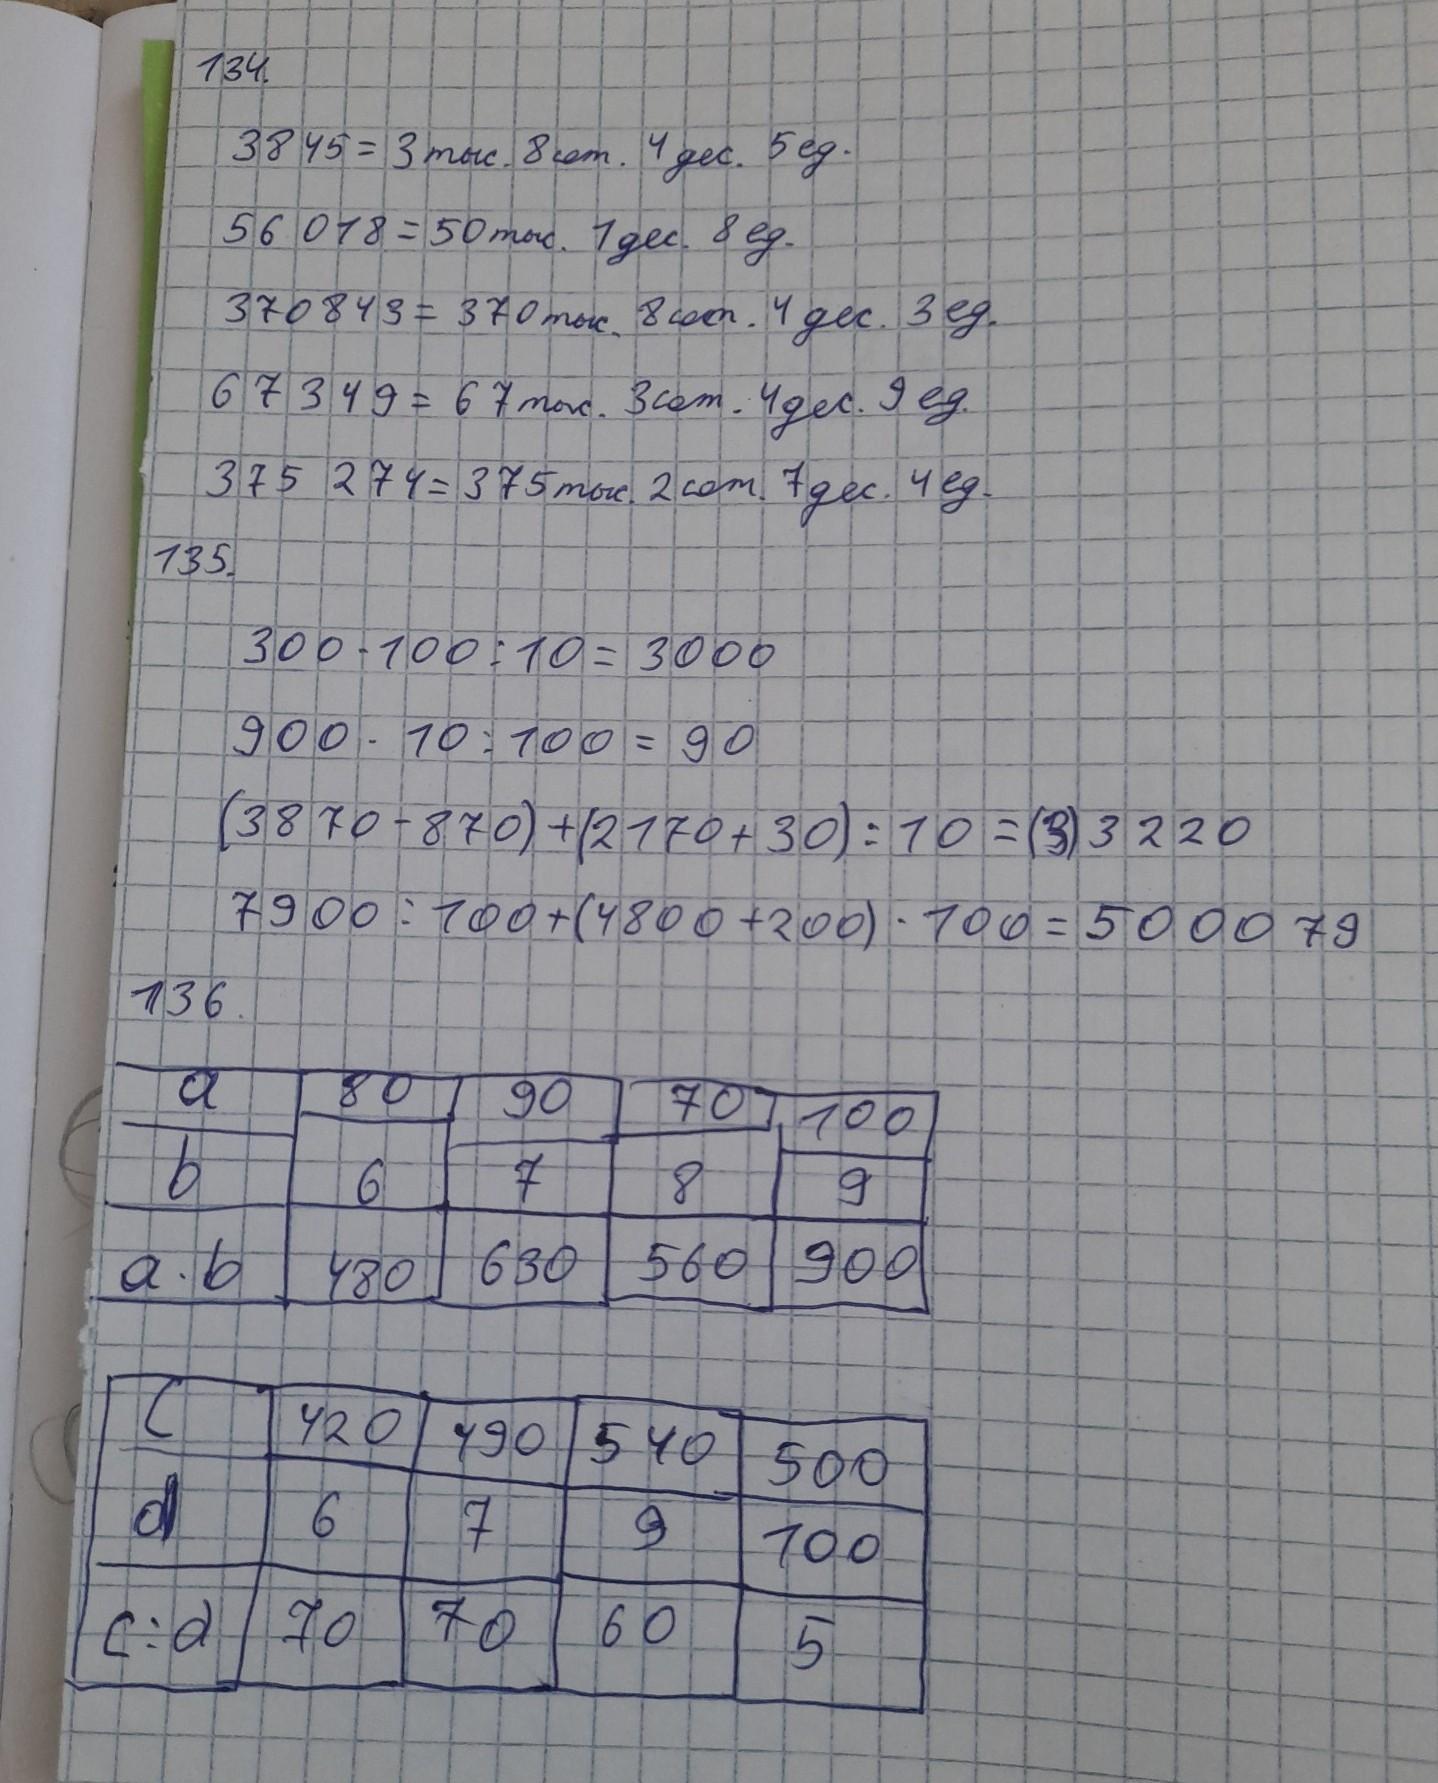 134.
3845 = 3 тыс. 8 сот. 4 дес. 5 ед.
56 018 = 50 тыс. 1 дес. 8 ед.
370 843 = 370 тыс. 8 сот. 4 дес. 3 ед.
67 349 = 67 тыс. 3 сот. 4 дес. 9 ед.
375 274 = 375 тыс. 2 сот. 7 дес. 4 ед.
135.
300 · 100 : 10 = 3000
900 · 10 : 100 = 90
(3870 - 870) + (2170 + 30) : 10 = (3) 3220
7900 : 100 + (4800 + 200) · 100 = 500079
136.
a 80 90 70 100
b 6 7 8 9
a · b 480 630 560 900
c 420 490 540 500
d 6 7 9 100
c : d 70 70 60 5